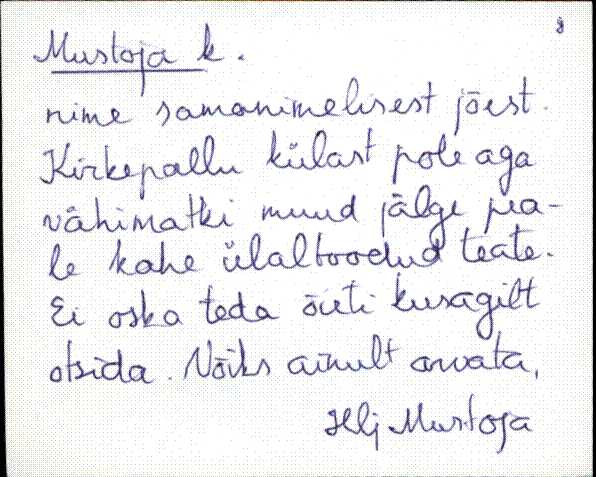 8
Mustoja k.
nime samanimelisest jõest.
Kirkepallu külast pole aga
vähimatki muud jälge pea-
le kahe ülaltoodud teate.
Ei oska teda õieti kusagilt
otsida. Võiks ainult arvata,
Hlj Mustoja